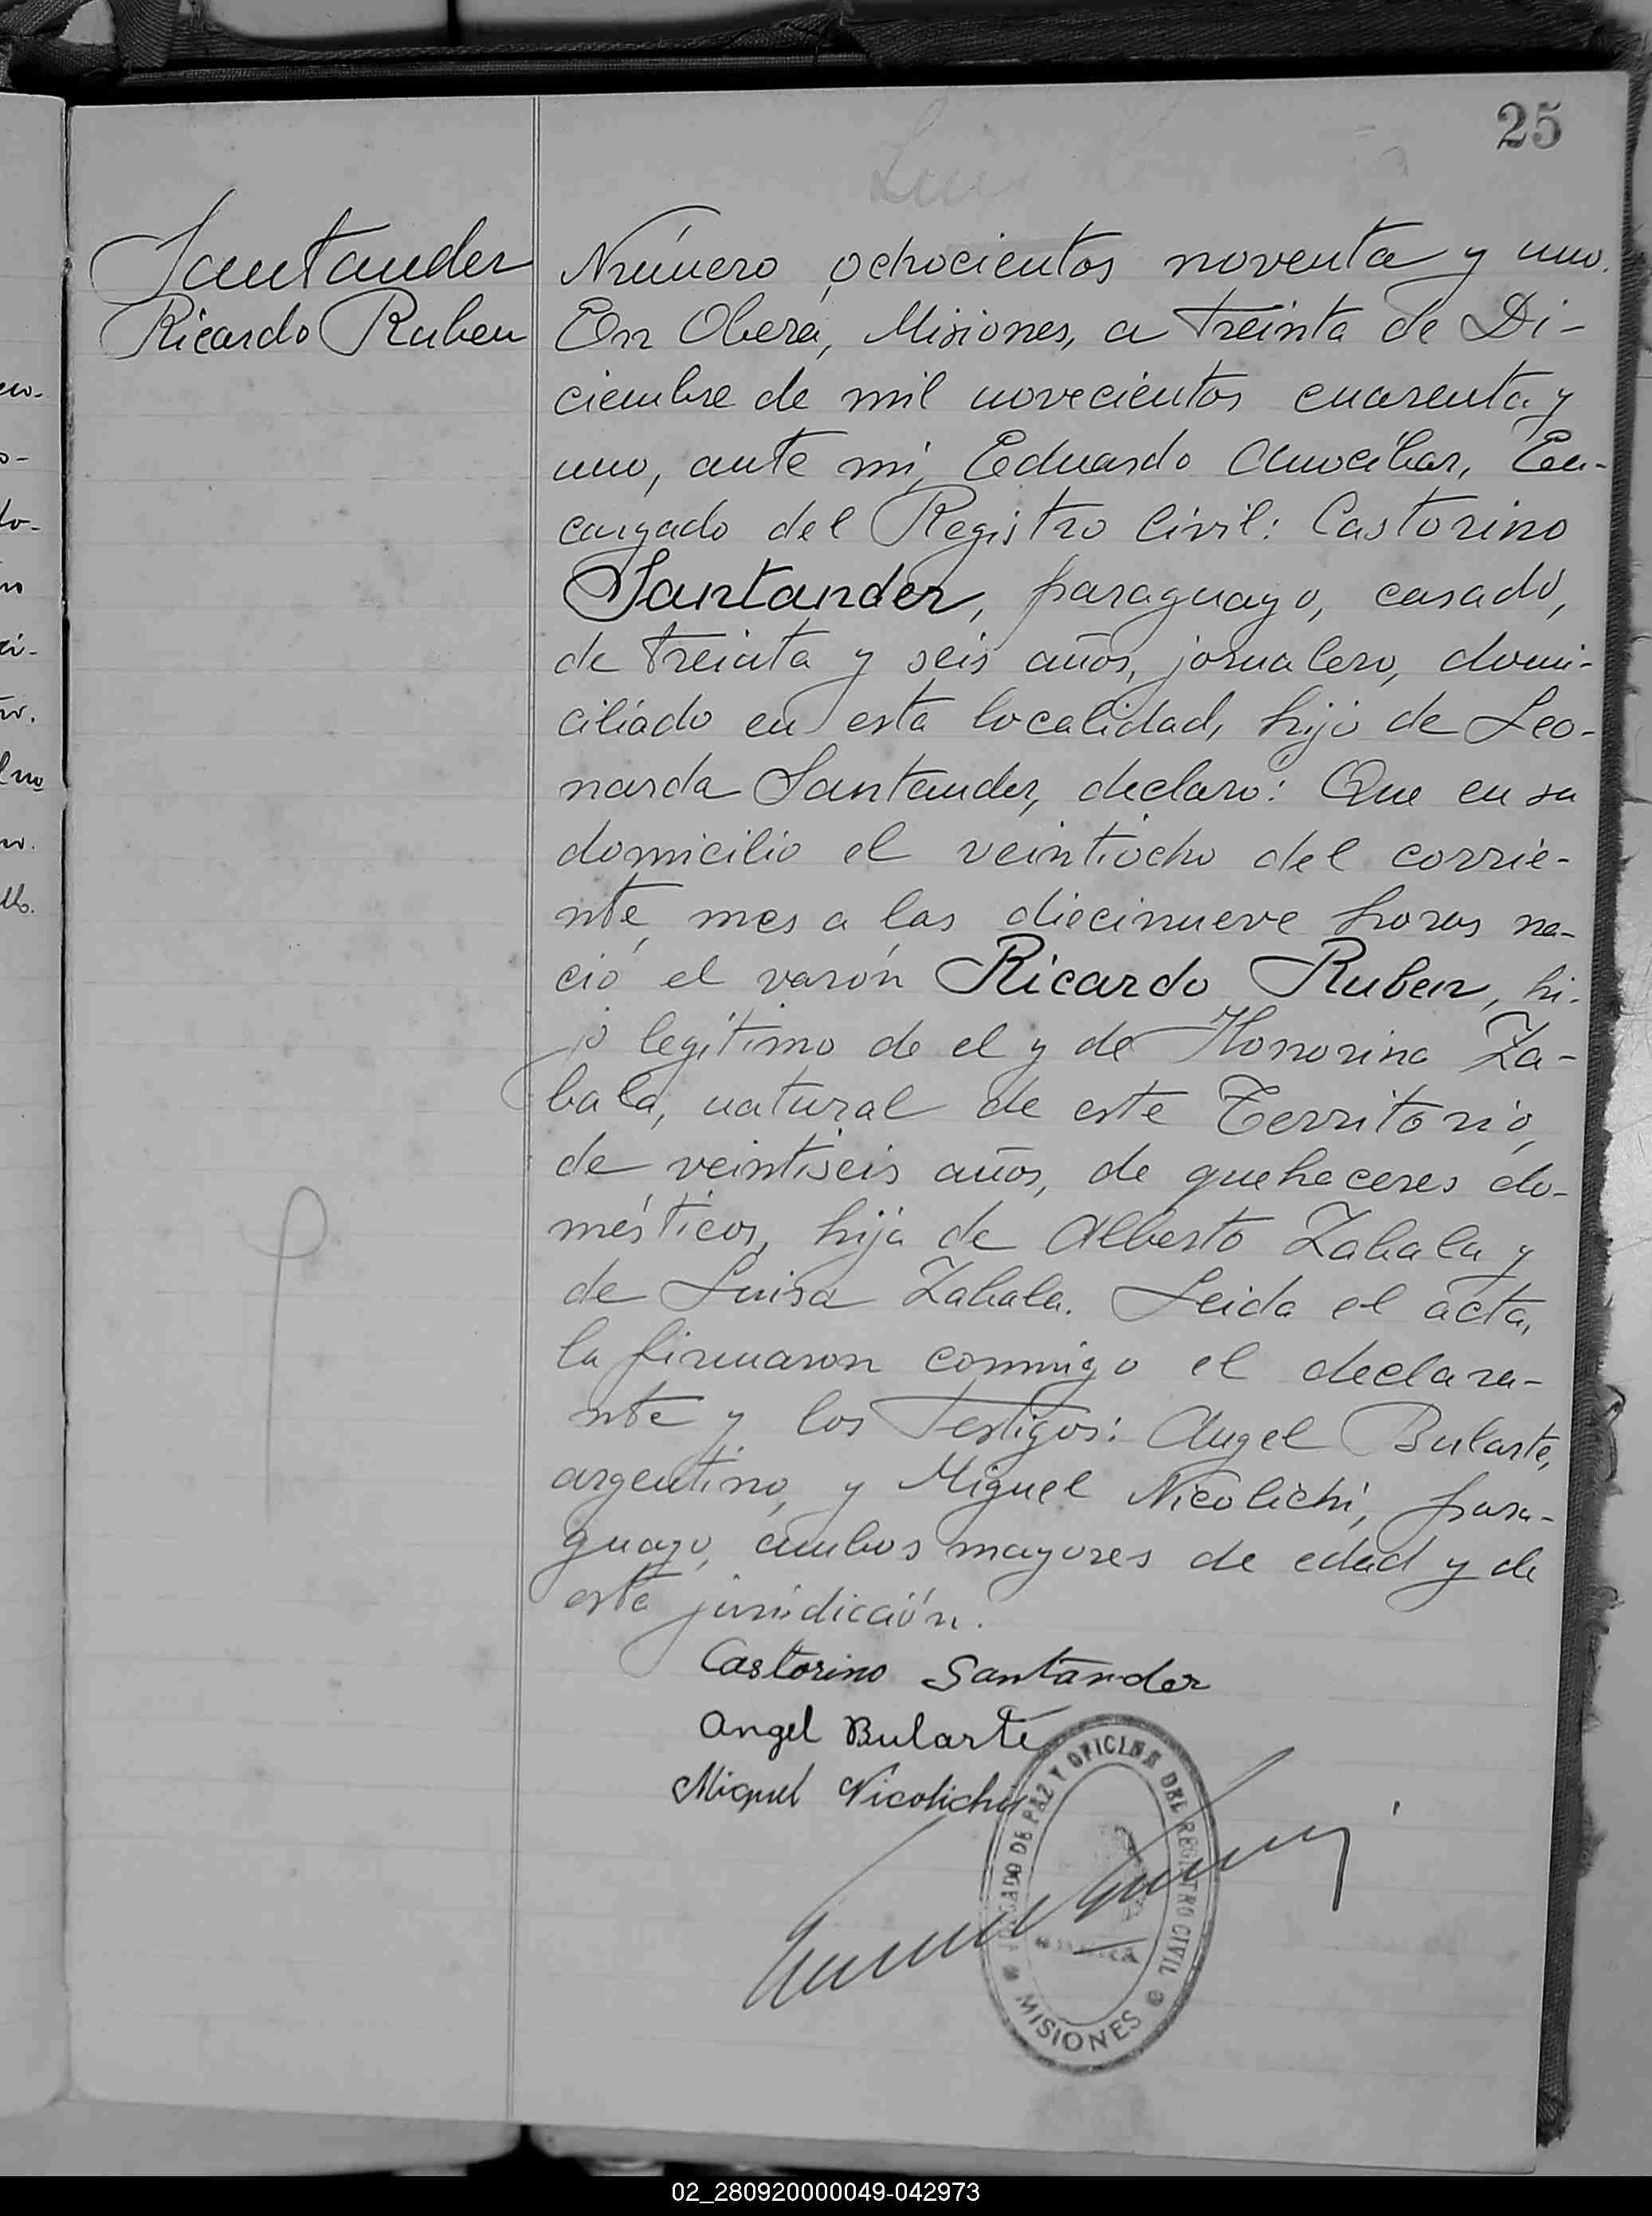 25
Santander
Ricardo Ruben
Número ochocientos noventa y uno.
En Oberá, Misiones, a treinta de Di-
ciembre de mil novecientos cuarenta y
uno, ante mi, Eduardo Amocíbar, En-
cargado del Registro Civil: Castorino
Santander, paraguayo, casado,
de treinta y seis años, jornalero, domi-
ciliado en esta localidad, hijo de Leo-
narda Santander, declaro: Que en su
domicilio el veintiocho del corrie-
nte mes a las diecinueve horas na-
ció el varón Ricardo Ruben, hi-
jo legítimo de el y de Honorina Za-
bala, natural de este Territorio,
de veintiseis años, de quehaceres do-
mésticos, hija de Alberto Zabala y
de Luisa Zabala. Leida el acta,
la firmaron conmigo el declara-
nte y los testigos: Angel Bularte,
argentino, y Miguel Nicolichi, para-
guayo, ambos mayores de edad y de
esta jurisdicción.
Castorino Santander
Angel Bularte
Miguel Nicolichi
JUZGADO DE PAZ Y OFICINA DEL REGISTRO CIVIL
MISIONES
02_280920000049-042973